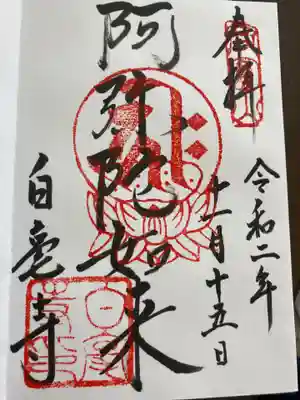 奉拝
令和二年
十一月十五日
阿弥陀如来
白毫寺